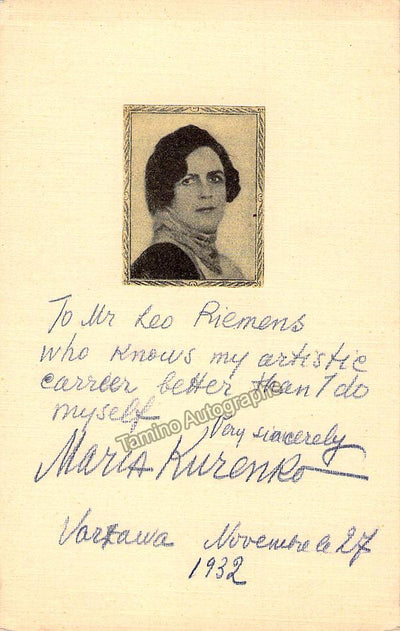 To Mr Leo Riemens
who knows my artistic
carreer better than I do
myself
Very sincerely
Maria Kurenko
Tamino Autographs
Varzawa Novembre le 27
1932